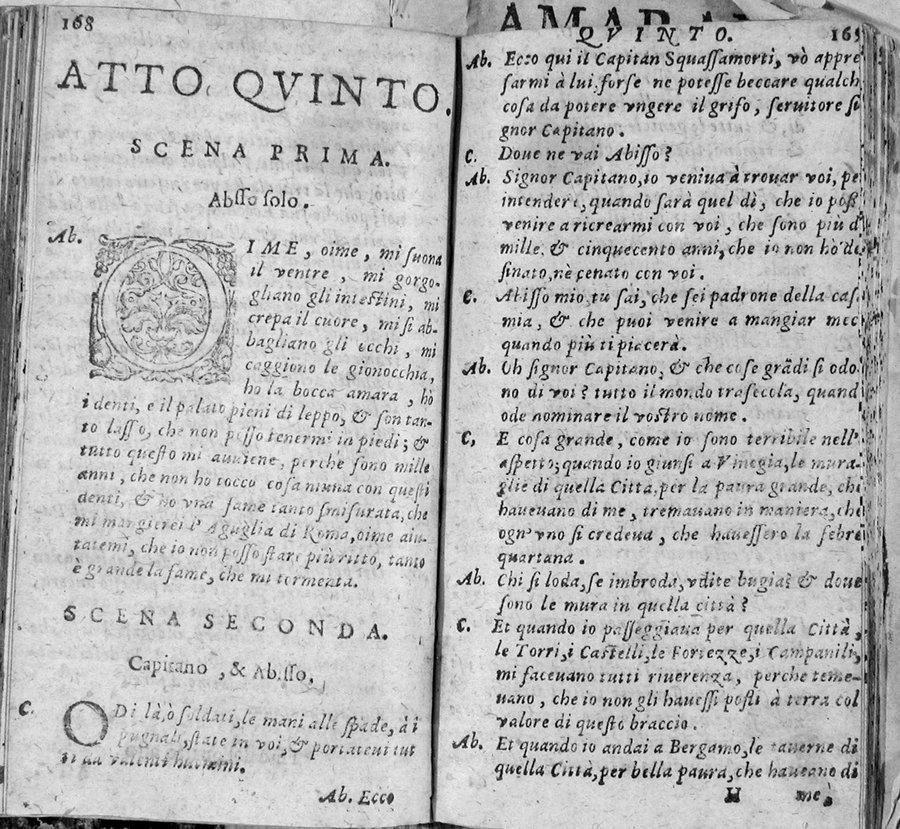 AMARA
168
ATTO QVINTO.
SCENA PRIMA.
Abſſo ſolo.
Ab. OIME, oime, mi ſuona
il ventre, mi gorgo-
gliano gli inteſtini, mi
crepa il cuore, mi ſi ab-
bagliano gli occhi, mi
caggiono le gionocchia,
ho la bocca amara, ho
i denti, e il palato pieni di leppo, & ſon tan-
to laſſo, che non poſſo tenermi in piedi; &
tutto queſto mi auuiene, perche ſono mille
anni, che non ho tocco coſa niuna con queſti
denti, & ho vna fame tanto ſmiſurata, che
mi mangierei l'Aguglia di Roma, oime aiu-
tatemi, che io non poſſo ſtare più ritto, tanto
è grande la fame, che mi tormenta.
SCENA SECONDA.
Capitano, & Abiſſo.
C. ODi là, ò ſoldati, le mani alle ſpade, à i
pugnali, ſtate in voi, & portateui tut
ti da valenti huomini.
Ab. Ecco
QVINTO. 165
Ab. Ecco qui il Capitan Squaſſamorti, vò appre
ſarmi à lui, forſe ne poteſſe beccare qualch
coſa da potere vngere il grifo, ſeruitore ſi
gnor Capitano.
C. Doue ne vai Abiſſo?
Ab. Signor Capitano, io veniua à trouar voi, pe
intendere, quando ſarà quel dì, che io poſſ
venire a ricrearmi con voi, che ſono più d
mille, & cinquecento anni, che io non hò de
ſinato, nè cenato con voi.
C. Abiſſo mio, tu ſai, che ſei padrone della caſ
mia, & che puoi venire a mangiar mec
quando più ti piacerà.
Ab. Oh ſignor Capitano, & che coſe grādi ſi odo
no di voi? tutto il mondo traſecola, quand
ode nominare il voſtro nome.
C, E coſa grande, come io ſono terribile nell'
aſpetto; quando io giunſi a Vinegia, le mura
glie di quella Città, per la paura grande, che
haueuano di me, tremauano in maniera, che
ogn'vno ſi credeua, che haueſſero la febre
quartana.
Ab. Chi ſi loda, ſe imbroda, vdite bugia? & doue
ſono le mura in quella città?
C. Et quando io paſſeggiaua per quella Città,
le Torri, i Caſtelli, le Fortezze, i Campanili,
mi faceuano tutti riuerenza, perche teme-
uano, che io non gli haueſſi poſti à terra col
valore di queſto braccio.
Ab. Et quando io andai a Bergamo, le tauerne di
quella Città, per bella paura, che haueano di
H me,